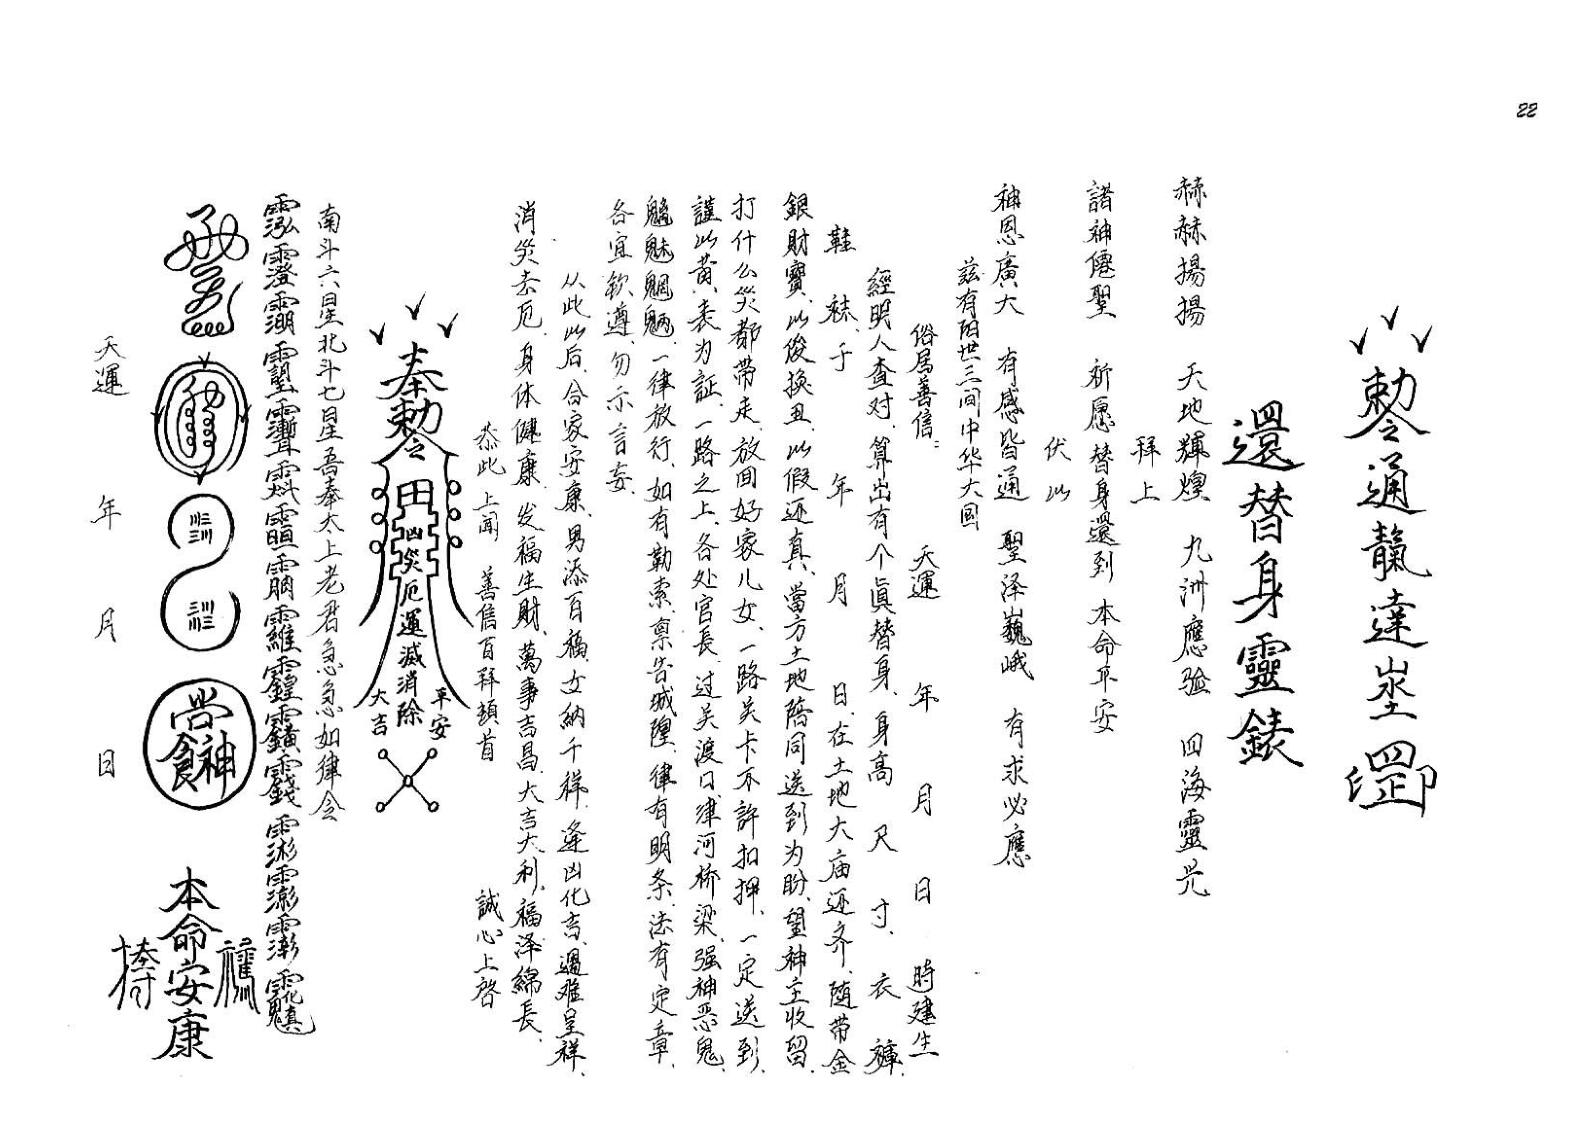 22
勅令通靝達埊
還替身靈錶
赫赫揚揚 天地輝煌 九洲應验 四海靈光
拜上
諸神僊聖 祈愿替身還到 本命平安
伏以
神恩廣大 有感皆通 聖泽巍峨 有求必應
兹有阳世三间中华大國
俗居善信: 天運 年 月 日 時建生
經明人查对、算出有个眞替身、身高 尺 寸、衣褲、
鞋 袜、于 年 月 日、在土地大庙还齐、随带金
銀財寶、以俊换丑、以假还真、當方土地陪同送到为盼、望神主收留、
打什么災都带走、放回好家儿女、一路关卡不許扣押、一定送到、
謹以黄表为証、一路之上、各处官長、过关渡口、津河桥梁、强神恶鬼、
魑魅魍魉、一律放行、如有勒索、禀告城隍、律有明条、法有定章、
各宜欽遵、勿示言妄、
从此以后、合家安康、男添百福、女納千祥、逢凶化吉、遇难呈祥、
消災去厄、身体健康、发福生財、萬事吉昌、大吉大利、福泽綿長、
恭此 上闻 善信百拜頓首 誠心上啓
奉勅令
凶災厄運滅消除
平安
大吉
南斗六星北斗七星吾奉太上老君急急如律令
本命安康
天運 年 月 日